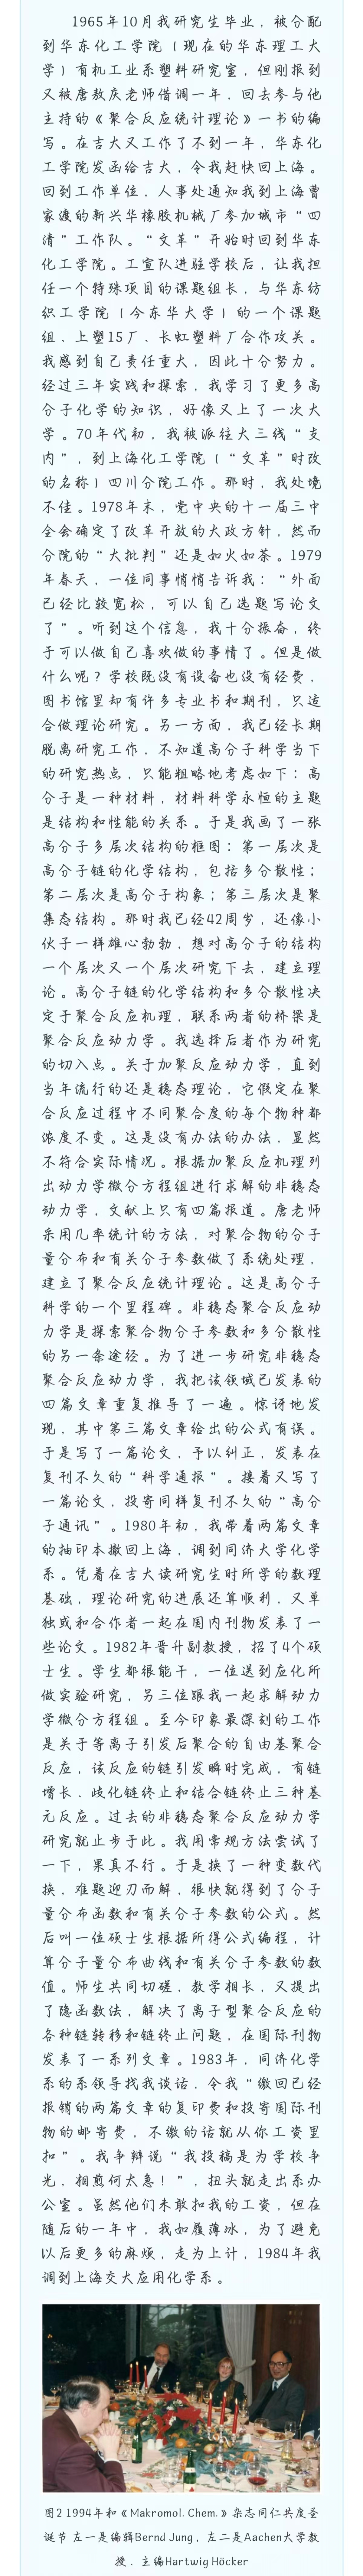 1965年10月我研究生毕业，被分配
到华东化工学院（现在的华东理工大
学）有机工业系塑料研究室，但刚报到
又被唐敖庆老师借调一年，回去参与他
主持的《聚合反应统计理论》一书的编
写。在吉大又工作了不到一年，华东化
工学院发函给吉大，令我赶快回上海。
回到工作单位，人事处通知我到上海曹
家渡的新兴华橡胶机械厂参加城市“四
清”工作队。“文革”开始时回到华东
化工学院。工宣队进驻学校后，让我担
任一个特殊项目的课题组长，与华东纺
织工学院（今东华大学）的一个课题
组、上塑15厂、长虹塑料厂合作攻关。
我感到自己责任重大，因此十分努力。
经过三年实践和探索，我学习了更多高
分子化学的知识，好像又上了一次大
学。70年代初，我被派往大三线“支
内”，到上海化工学院（“文革”时改
的名称）四川分院工作。那时，我处境
不佳。1978年末，党中央的十一届三中
全会确定了改革开放的大政方针，然而
分院的“大批判”还是如火如荼。1979
年春天，一位同事悄悄告诉我：“外面
已经比较宽松，可以自己选题写论文
了”。听到这个信息，我十分振奋，终
于可以做自己喜欢做的事情了。但是做
什么呢？学校既没有设备也没有经费，
图书馆里却有许多专业书和期刊，只适
合做理论研究。另一方面，我已经长期
脱离研究工作，不知道高分子科学当下
的研究热点，只能粗略地考虑如下：高
分子是一种材料，材料科学永恒的主题
是结构和性能的关系。于是我画了一张
高分子多层次结构的框图：第一层次是
高分子链的化学结构，包括多分散性；
第二层次是高分子构象；第三层次是聚
集态结构。那时我已经42周岁，还像小
伙子一样雄心勃勃，想对高分子的结构
一个层次又一个层次研究下去，建立理
论。高分子链的化学结构和多分散性决
定于聚合反应机理，联系两者的桥梁是
聚合反应动力学。我选择后者作为研究
的切入点。关于加聚反应动力学，直到
当年流行的还是稳态理论，它假定在聚
合反应过程中不同聚合度的每个物种都
浓度不变。这是没有办法的办法，显然
不符合实际情况。根据加聚反应机理列
出动力学微分方程组进行求解的非稳态
动力学，文献上只有四篇报道。唐老师
采用几率统计的方法，对聚合物的分子
量分布和有关分子参数做了系统处理，
建立了聚合反应统计理论。这是高分子
科学的一个里程碑。非稳态聚合反应动
力学是探索聚合物分子参数和多分散性
的另一条途径。为了进一步研究非稳态
聚合反应动力学，我把该领域已发表的
四篇文章重复推导了一遍。惊讶地发
现，其中第三篇文章给出的公式有误。
于是写了一篇论文，予以纠正，发表在
复刊不久的“科学通报”。接着又写了
一篇论文，投寄同样复刊不久的“高分
子通讯”。1980年初，我带着两篇文章
的抽印本撤回上海，调到同济大学化学
系。凭着在吉大读研究生时所学的数理
基础，理论研究的进展还算顺利，又单
独或和合作者一起在国内刊物发表了一
些论文。1982年晋升副教授，招了4个硕
士生。学生都很能干，一位送到应化所
做实验研究，另三位跟我一起求解动力
学微分方程组。至今印象最深刻的工作
是关于等离子引发后聚合的自由基聚合
反应，该反应的链引发瞬时完成，有链
增长、歧化链终止和结合链终止三种基
元反应。过去的非稳态聚合反应动力学
研究就止步于此。我用常规方法尝试了
一下，果真不行。于是换了一种变数代
换，难题迎刃而解，很快就得到了分子
量分布函数和有关分子参数的公式。然
后叫一位硕士生根据所得公式编程，计
算分子量分布曲线和有关分子参数的数
值。师生共同切磋，教学相长，又提出
了隐函数法，解决了离子型聚合反应的
各种链转移和链终止问题，在国际刊物
发表了一系列文章。1983年，同济化学
系的系领导找我谈话，令我“缴回已经
报销的两篇文章的复印费和投寄国际刊
物的邮寄费，不缴的话就从你工资里
扣”。我争辩说“我投稿是为学校争
光，相煎何太急！”，扭头就走出系办
公室。虽然他们未敢扣我的工资，但在
随后的一年中，我如履薄冰，为了避免
以后更多的麻烦，走为上计，1984年我
调到上海交大应用化学系。
图2 1994年和《Makromol. Chem.》杂志同仁共度圣
诞节 左一是编辑Bernd Jung，左二是Aachen大学教
授、主编Hartwig Höcker